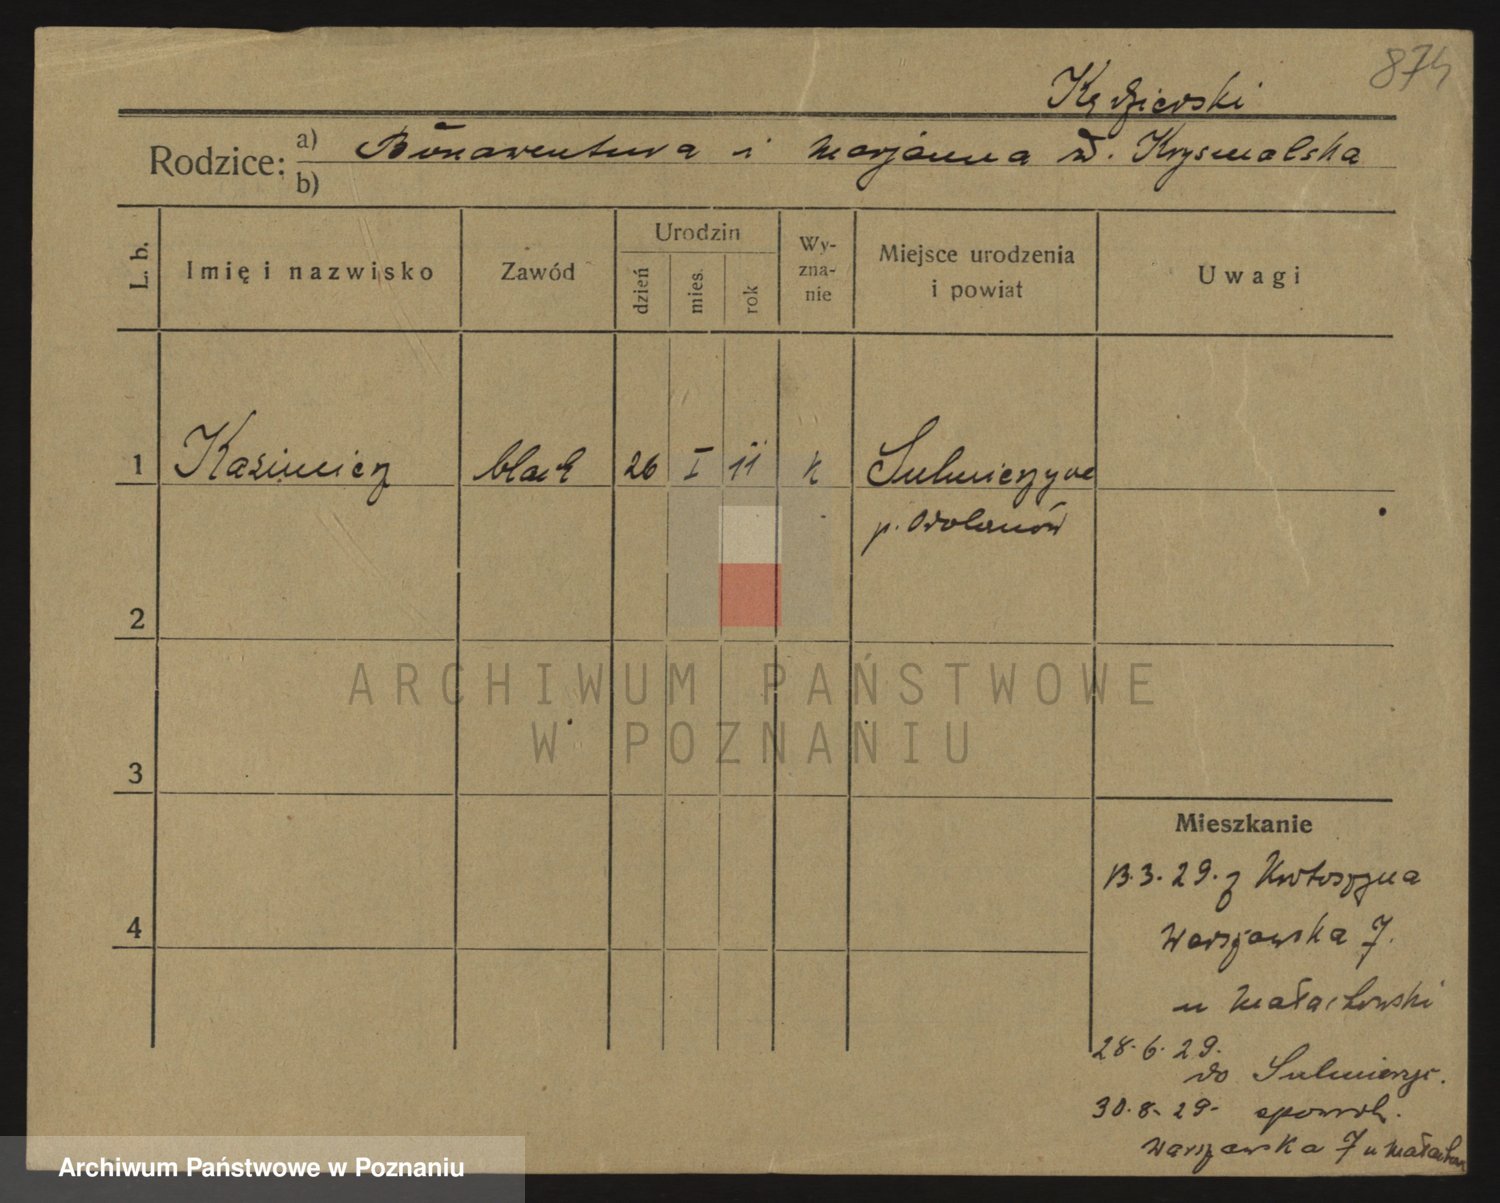 874
Kędzierski
Rodzice: a) Bonawentura i Marjanna zd. Krysmalska
b)
L. b.
Imię i nazwisko
Zawód
Urodzin
dzień
mies.
rok
Wy-
zna-
nie
Miejsce urodzenia
i powiat
Uwagi
1 Kazimierz blach 26 I 11 k Sulmierzyce
p. Odolanów
2
3
4
Mieszkanie
13.3.29. z Krotoszyna
Warszawska 7.
u Małachowski
28.6.29.
do Sulmierzyc.
30.8.29.
Warszawska 7 u
ARCHIWUM PAŃSTWOWE
W POZNANIU
Archiwum Państwowe w Poznaniu